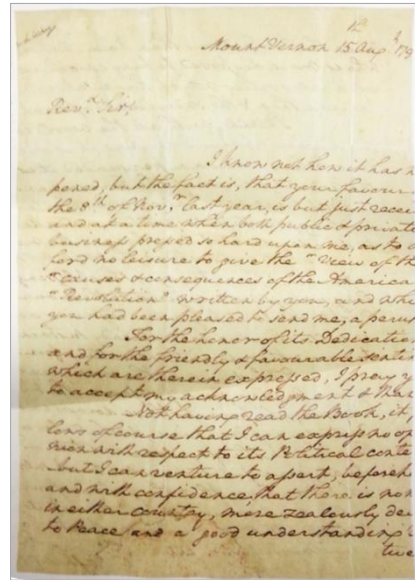 Mount Vernon 15th Augt 179
Revd Sir,
I know not how it has h
pened, but the fact is, that your favour
the 8th of Novr last year, is but just recei
and at a time when both public & private
business pressed so hard upon me, as to
ford no leisure to give the "View of th
"causes & consequences of the America
"Revolution" written by you, and wh
you had been pleased to send me, a perus
For the honor of its Dedication
and for the friendly & favourable senti
which are therein expressed, I pray y
to accept my acknowledgment & than
Not having read the Book, it
lows of course that I can express no op
nion with respect to its Political conte
but I can venture to assert, beforeh
and with confidence, that there is no
in either country, more zealously de
to Peace and a good understanding
twe